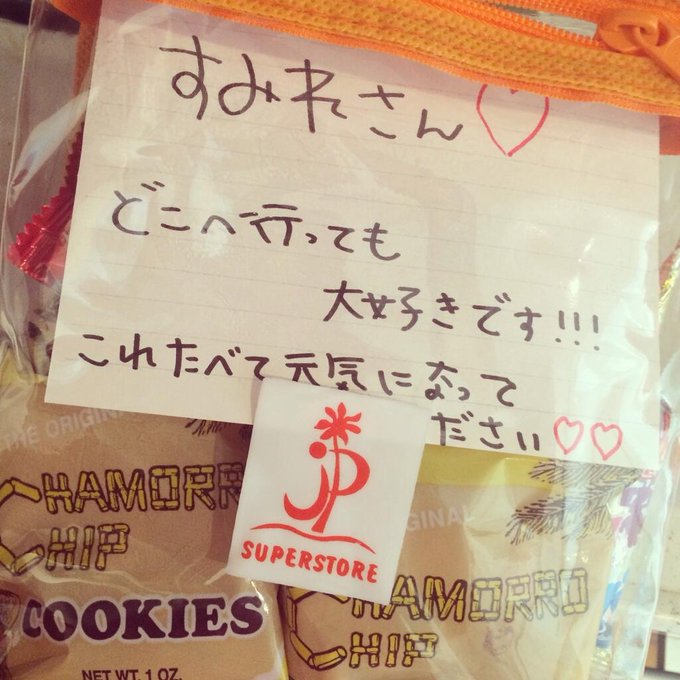 すみれさん♡
どこへ行っても
大好きです!!!
これたべて元気になって
ださい♡♡
JP
SUPERSTORE
THE ORIGINAL
CHAMORRO
CHIP
COOKIES
NET WT. 1 OZ.
ORIGINAL
CHAMORRO
CHIP